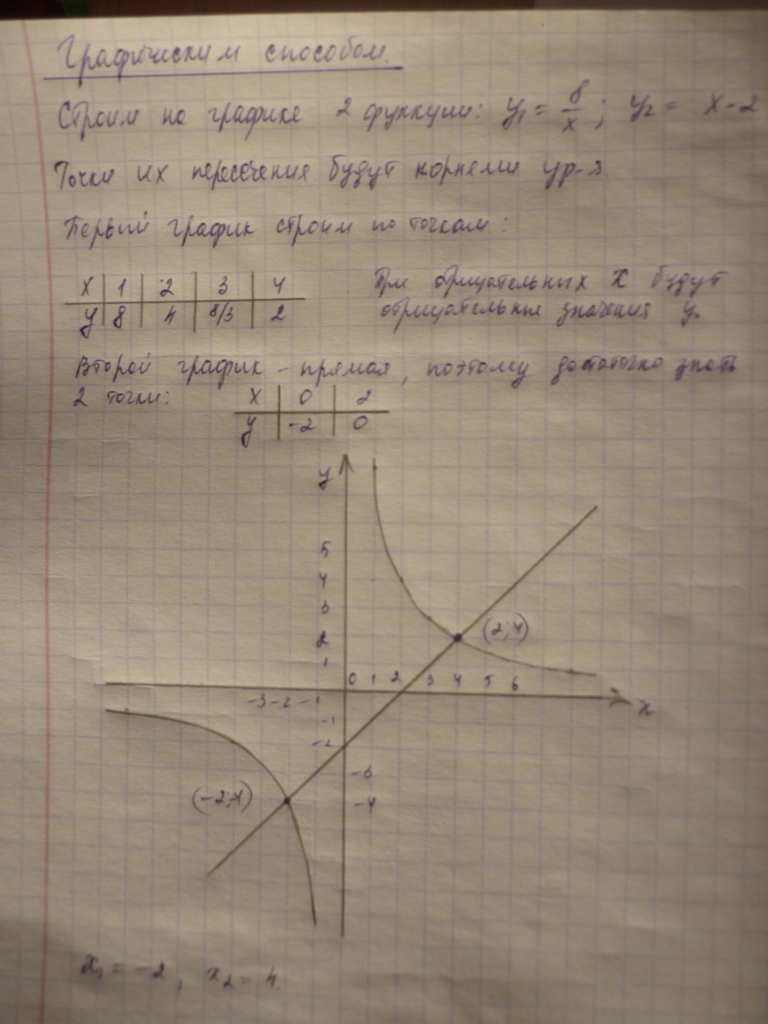 Графическим способом.
Строим на графике 2 функции: y₁ = 8/x; y₂ = x-2
Точки их пересечения будут корнями ур-я
Первый график строим по точкам:
x 1 2 3 4
y 8 4 8/3 2
При отрицательных x будут
отрицательные значения y.
Второй график - прямая, поэтому достаточно знать
2 точки:
x 0 2
y -2 0
y
5
4
3
2
1
0 1 2 3 4 5 6
(2;4)
-3 -2 -1
x
-1
-2
-3
-4
(-2;4)
x₁ = -2, x₂ = 4.